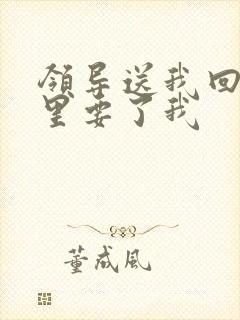 领导送我回
里要了我
董成风